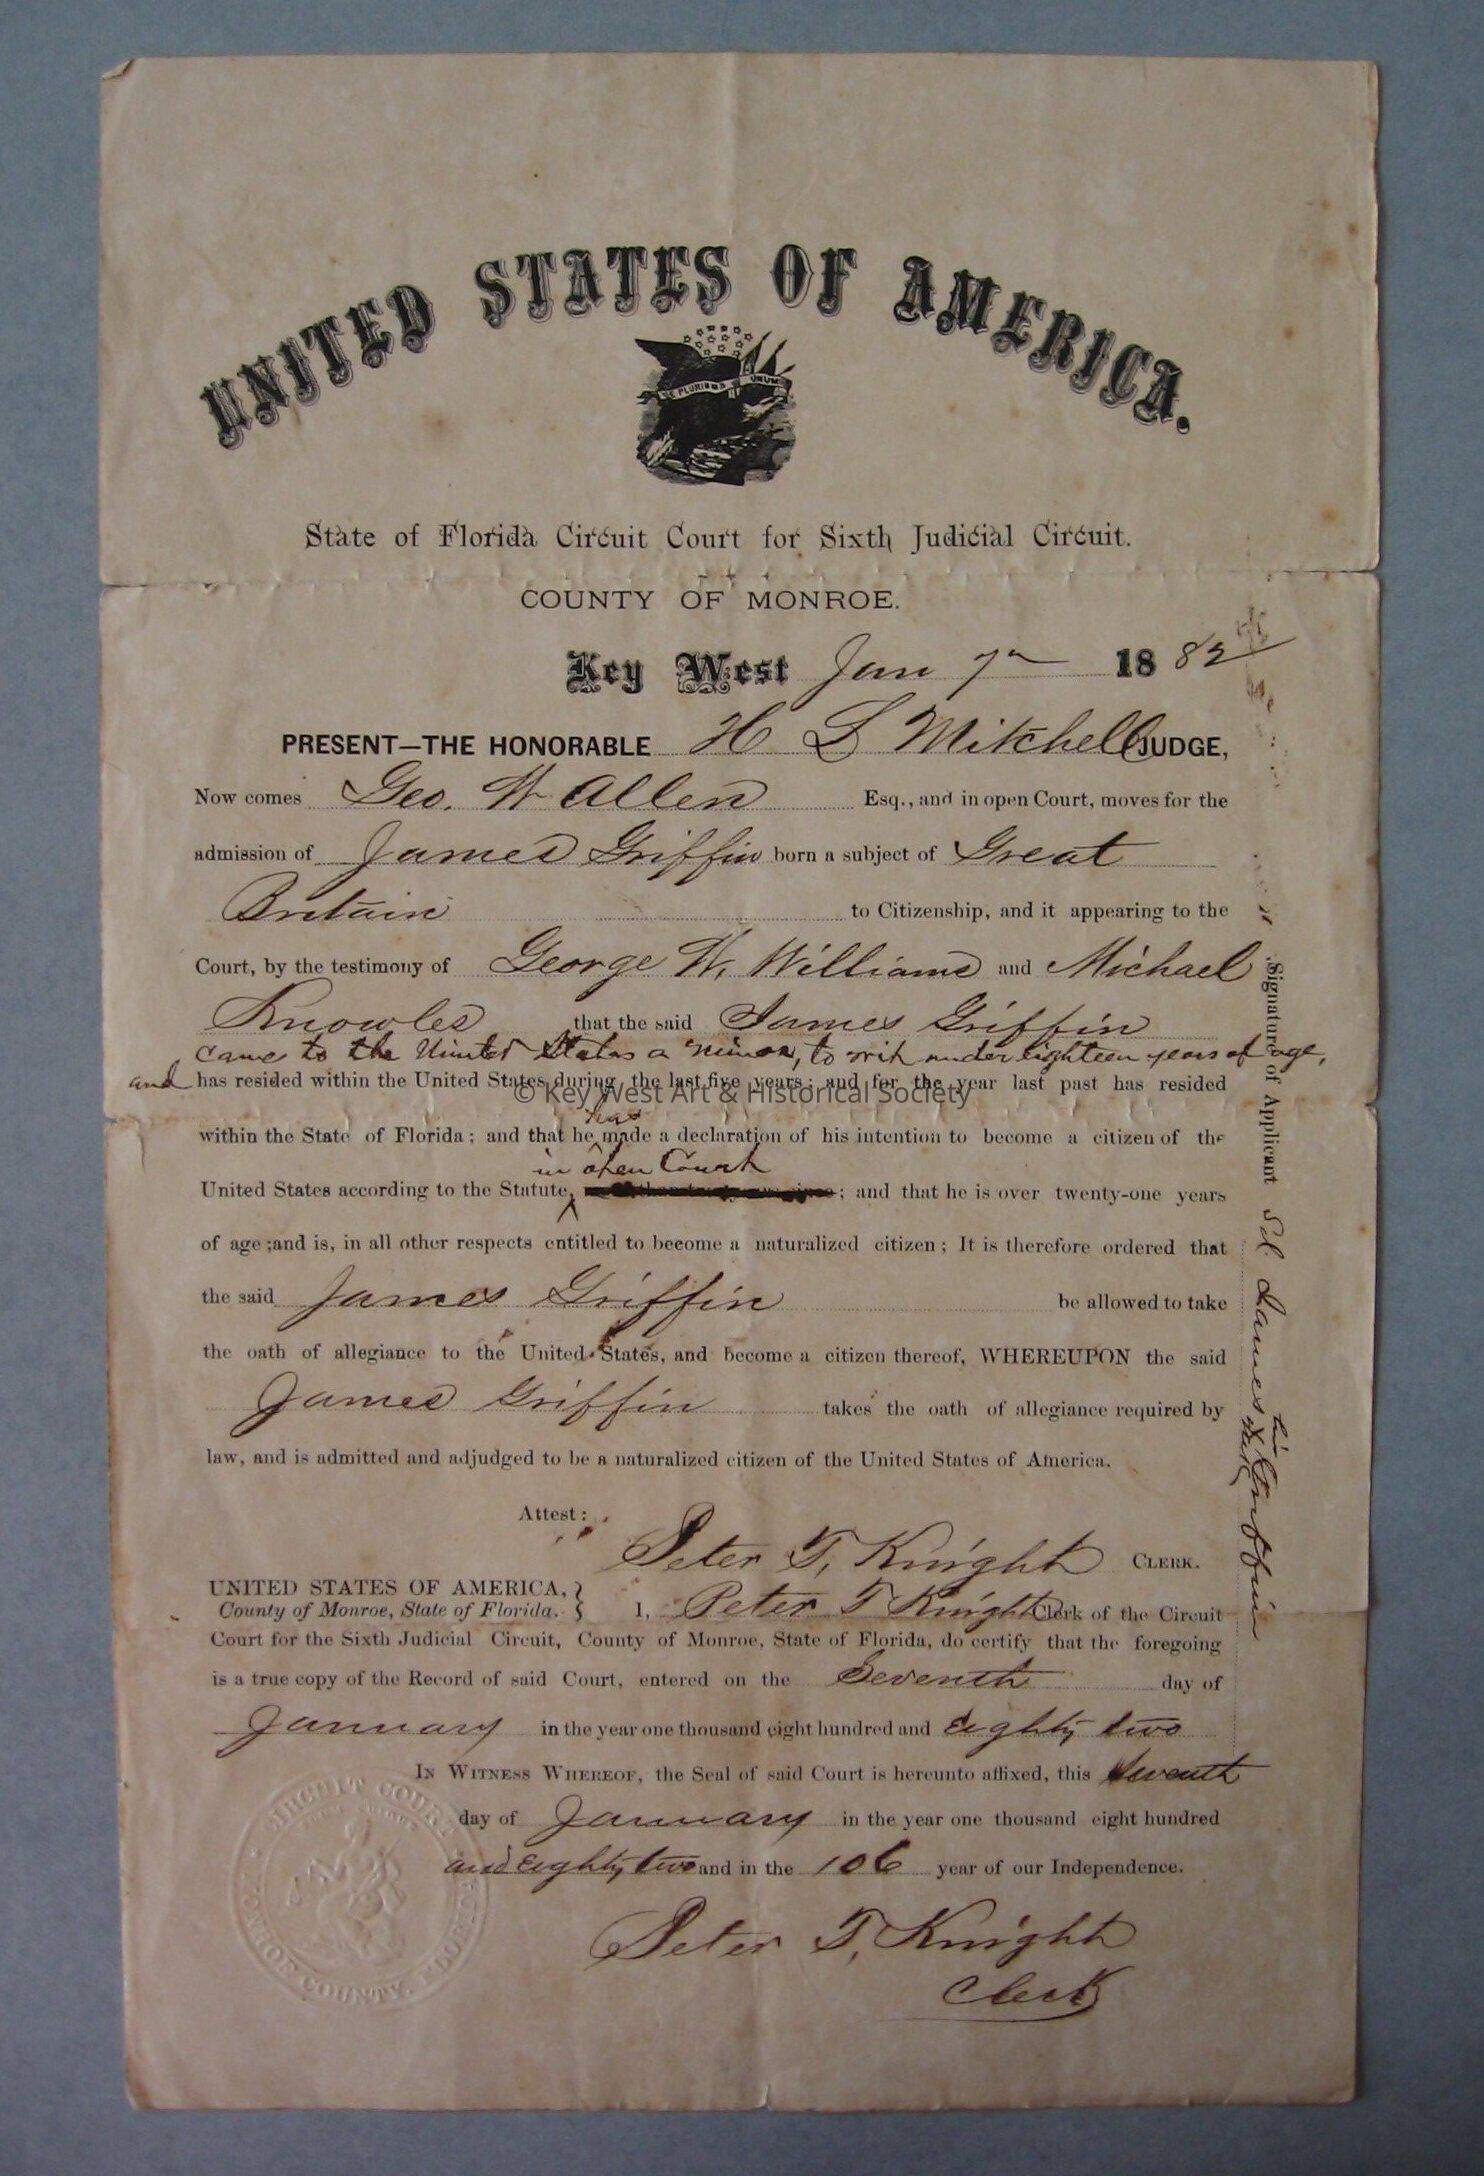 UNITED STATES OF AMERICA.
E PLURIBUS UNUM
State of Florida Circuit Court for Sixth Judicial Circuit.
COUNTY OF MONROE.
Key West Jan 7th 1882
PRESENT—THE HONORABLE H L Mitchell JUDGE,
Now comes Geo. W Allen Esq., and in open Court, moves for the
admission of James Griffin born a subject of Great
Britain to Citizenship, and it appearing to the
Court, by the testimony of George W. Williams and Michael
Knowles that the said James Griffin
came to the United States a minor, to wit under eighteen years of age,
and has resided within the United States during the last five years; and for the year last past has resided
© Key West Art & Historical Society
has
within the State of Florida; and that he made a declaration of his intention to become a citizen of the
in open Court
United States according to the Statute, ; and that he is over twenty-one years
of age ;and is, in all other respects entitled to become a naturalized citizen; It is therefore ordered that
the said James Griffin be allowed to take
the oath of allegiance to the United States, and become a citizen thereof, WHEREUPON the said
James Griffin takes the oath of allegiance required by
law, and is admitted and adjudged to be a naturalized citizen of the United States of America.
Attest:
Peter T, Knight CLERK.
UNITED STATES OF AMERICA, }
County of Monroe, State of Florida. } I, Peter T Knight Clerk of the Circuit
Court for the Sixth Judicial Circuit, County of Monroe, State of Florida, do certify that the foregoing
is a true copy of the Record of said Court, entered on the Seventh day of
January in the year one thousand eight hundred and Eighty two
IN WITNESS WHEREOF, the Seal of said Court is hereunto affixed, this Seventh
day of January in the year one thousand eight hundred
and Eighty two and in the 106 year of our Independence.
Peter T, Knight
Clerk
Signature of Applicant Sd. James his X mark Griffin
CIRCUIT COURT
MONROE COUNTY, FLORIDA